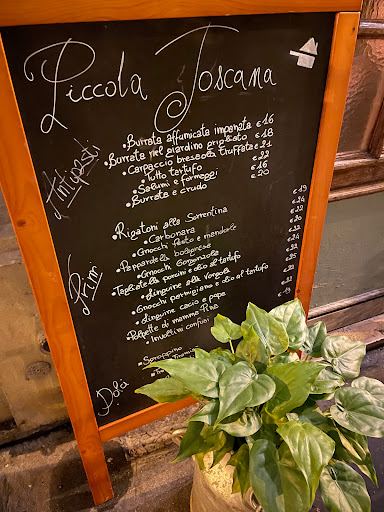 Piccola Toscana
Antipasti
• Burrata affumicata impanata €16
• Burrata nel giardino grigliato €18
• Carpaccio bresaola truffata €21
• Tutto tartufo €22
• Salumi e formaggi €16
• Burrata e crudo €20
Primi
Rigatoni alla Sorrentina €19
• Carbonara
Gnocchi pesto e mandorle
• Pappardella bolognese
• Gnocchi Gorgonzola
Tagliatella porcini e olio al tartufo
• Linguine alla vongola
• Gnocchi parmigiano e olio al tartufo
• Linguine cacio e pepe
Polpette di mamma Pina
• Involtini confusi